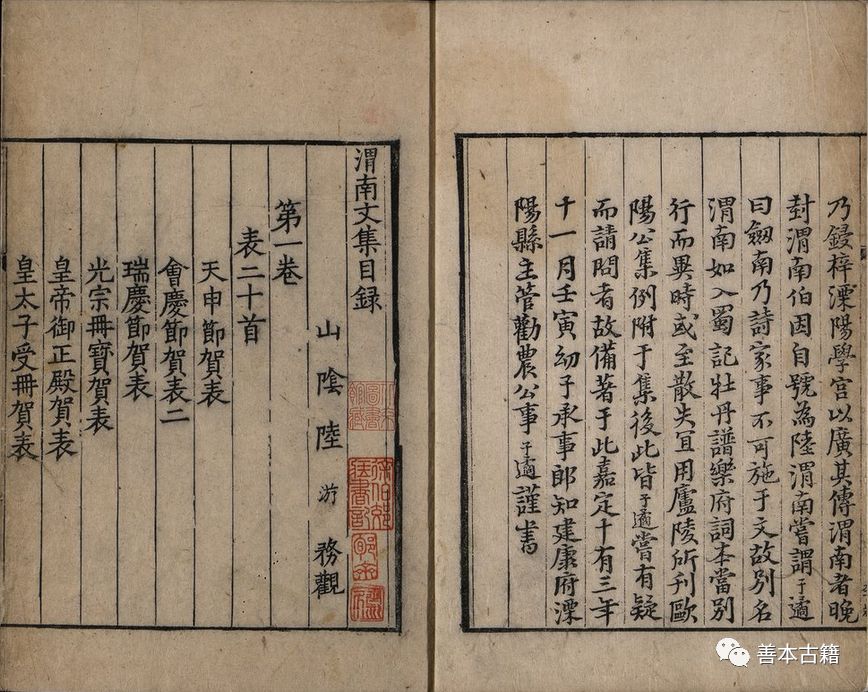 乃鋟梓溧陽學官以廣其傳渭南者晚
封渭南伯因自號為陸渭南嘗謂子遹
曰劒南乃詩家事不可施于文故別名
渭南如入蜀記牡丹譜樂府詞本當別
行而異時或至散失宜用廬陵所刊歐
陽公集例附于集後此皆子遹嘗有疑
而請問者故備著于此嘉定十有三年
十一月壬寅幼子承事郎知建康府溧
陽縣主管勸農公事子遹謹書
渭南文集目録
山陰陸游務觀
第一卷
表二十首
天申節賀表
會慶節賀表二
瑞慶節賀表
光宗冊寶賀表
皇帝御正殿賀表
皇太子受冊賀表
善本古籍